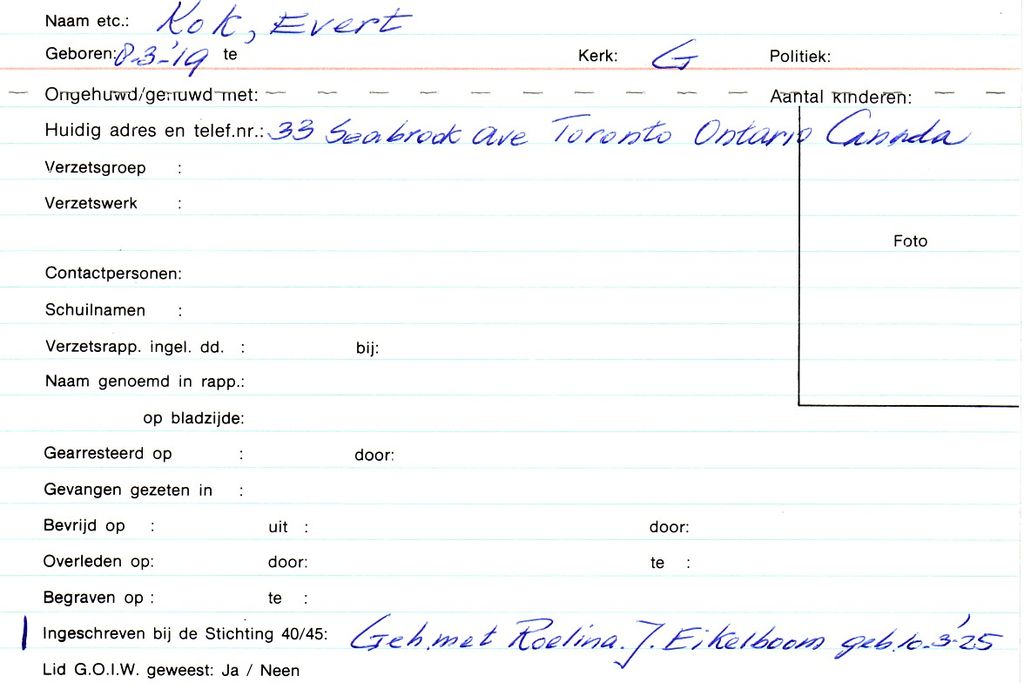 Naam etc.: Kok, Evert
Geboren: 8-3-'19 te Kerk: G Politiek:
Ongehuwd/gehuwd met: Aantal kinderen:
Huidig adres en telef.nr.: 33 Seabrook Ave Toronto Ontario Cannda
Verzetsgroep :
Verzetswerk :
Foto
Contactpersonen:
Schuilnamen :
Verzetsrapp. ingel. dd. : bij:
Naam genoemd in rapp.:
op bladzijde:
Gearresteerd op : door:
Gevangen gezeten in :
Bevrijd op : uit : door:
Overleden op: door: te :
Begraven op : te :
Ingeschreven bij de Stichting 40/45: Geh.met Roelina.J. Eikelboom geb.10-3-'25
Lid G.O.I.W. geweest: Ja / Neen